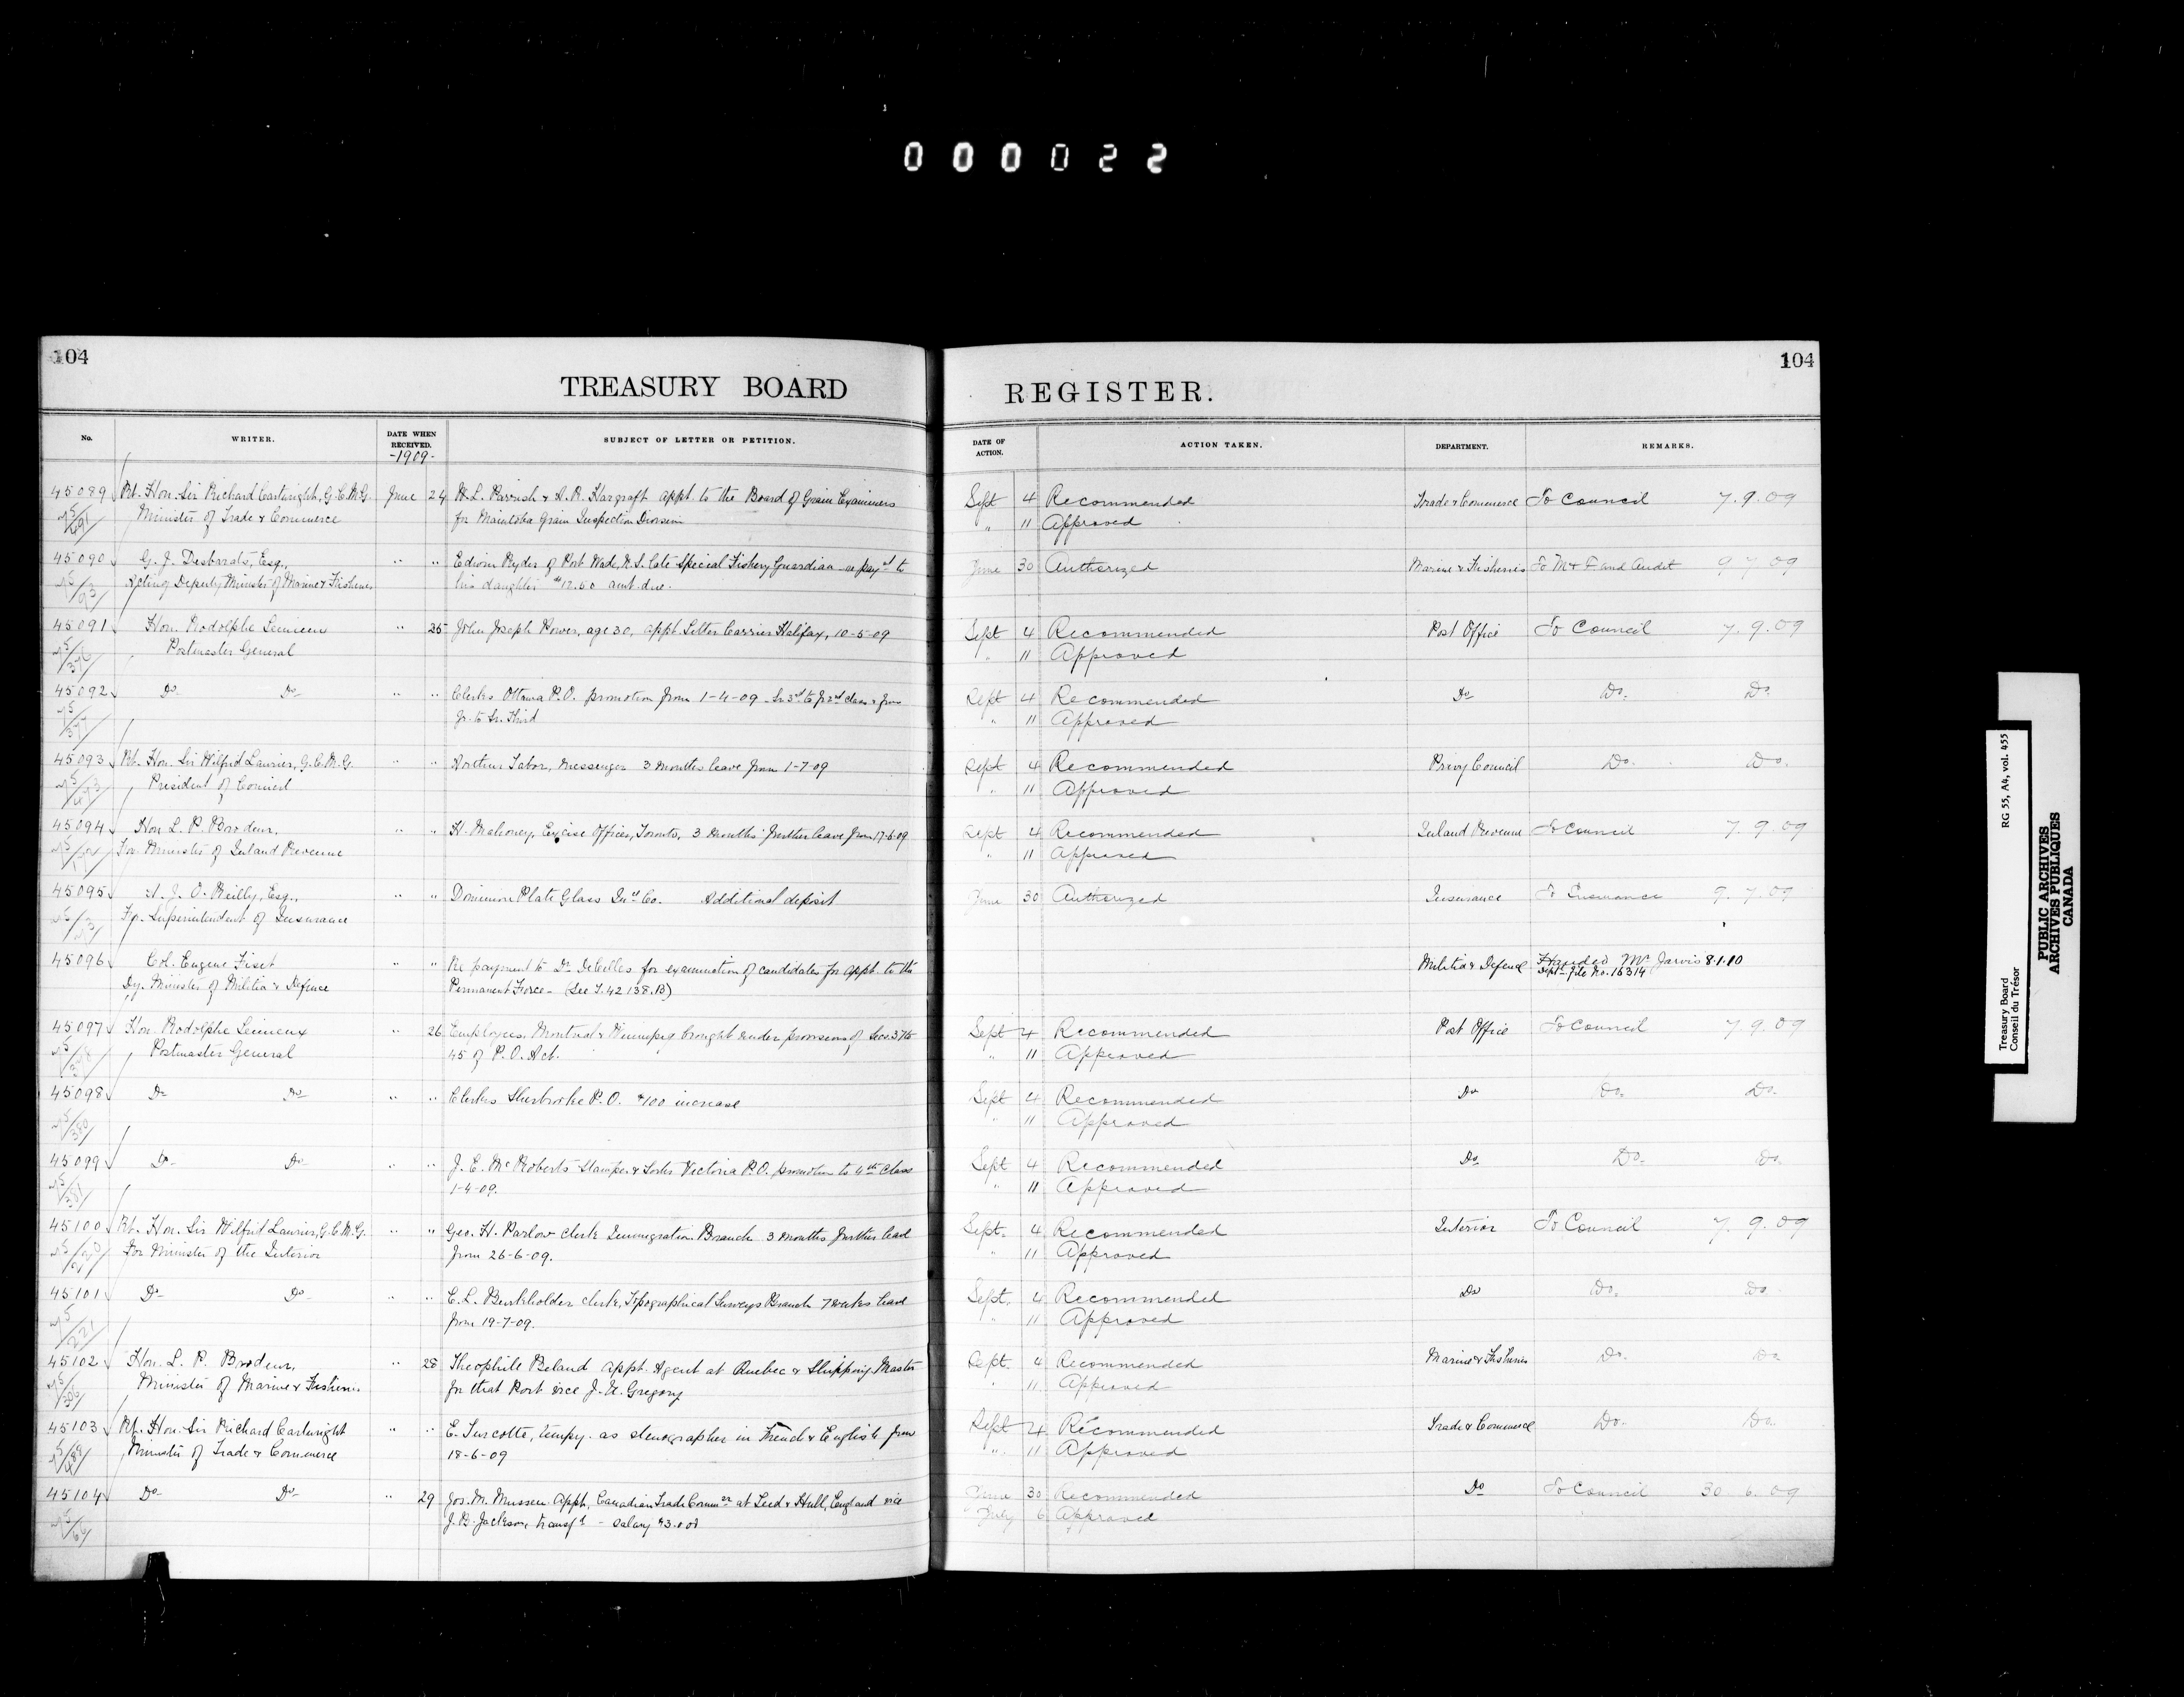 000022
104
TREASURY BOARD
No.
WRITER.
DATE WHEN RECEIVED.
-1909-
SUBJECT OF LETTER OR PETITION.
45089 Rt. Hon. Sir Richard Cartwright, G.C.M.G. June 24 W.L. Parrish & A.R. Hargraft appt. to the Board of Grain Examiners
Minister of Trade & Commerce for Manitoba Grain Inspection Division
45090 G.J. Desbarats, Esq., " " Edwin Ryder of Port Wade, N.S. late Special Fishery Guardian re payt to
Acting Deputy Minister of Marine & Fisheries his daughter $12.50 amt. due.
45091 Hon. Rodolphe Lemieux " 25 John Joseph Power, age 30, appt. Letter Carrier Halifax, 10-5-09
Postmaster General
45092 Do Do " " Clerks Ottawa P.O. promotion from 1-4-09 - Sr 3rd to Jr 2nd class & from
Jr. to Sr. Third
45093 Rt. Hon. Sir Wilfrid Laurier, G.C.M.G. " " Arthur Tabor, Messenger 3 months leave from 1-7-09
President of Council
45094 Hon. L.P. Brodeur, " " H. Mahoney, Excise Officer, Toronto, 3 months further leave from 17-6-09
For Minister of Inland Revenue
45095 A.J. O. Reilly, Esq., " " Dominion Plate Glass Insce Co. Additional deposit
Fr. Superintendent of Insurance
45096 Col. Eugene Fiset " " Re payment to Dr. DeCelles for examination of candidates for appt. to the
Dy. Minister of Militia & Defence Permanent Force - (See T. 42138.B)
45097 Hon. Rodolphe Lemieux " 26 Employees, Montreal & Winnipeg brought under provisions of Sec. 37 to
Postmaster General 45 of P.O. Act.
45098 Do Do " " Clerks Sherbrooke P.O. $100 increase
45099 Do Do " " J.E. McRoberts Stamper & Sorter Victoria P.O. promotion to 4th Class
1-4-09.
45100 Rt. Hon. Sir Wilfrid Laurier, G.C.M.G. " " Geo. H. Parlow Clerk Immigration Branch 3 months further leave
For Minister of the Interior from 26-6-09.
45101 Do Do " " E.L. Burkholder clerk, Topographical Surveys Branch 7 weeks leave
from 19-7-09.
45102 Hon. L.P. Brodeur, " 28 Theophile Beland appt. Agent at Quebec & Shipping Master
Minister of Marine & Fisheries for that Port vice J.U. Gregory
45103 Rt. Hon. Sir Richard Cartwright " " E. Turcotte, tempy. as stenographer in French & English from
Minister of Trade & Commerce 18-6-09
45104 Do Do " 29 Jos. M. Mussen appt. Canadian Trade Commr at Leed & Hull, England vice
J.B. Jackson, transfd - salary
104
REGISTER.
DATE OF ACTION.
ACTION TAKEN.
DEPARTMENT.
REMARKS.
Sept 4 Recommended Trade & Commerce To Council 7.9.09
" 11 Approved
June 30 Authorized Marine & Fisheries To M & F and Audit 9 7 09
Sept 4 Recommended Post Office To Council 7.9.09
" 11 Approved
Sept 4 Recommended Do Do. Do.
" 11 Approved
Sept 4 Recommended Privy Council Do. Do.
" 11 Approved
Sept 4 Recommended Inland Revenue To Council 7.9.09
" 11 Approved
June 30 Authorized Insurance To Insurance 9.7.09
Militia & Defence Handed Mr Jarvis 8.1.10
Dept. file No. 16314
Sept 4 Recommended Post Office To Council 7 9 09
" 11 Approved
Sept 4 Recommended Do Do. Do.
" 11 Approved
Sept 4 Recommended Do Do. Do.
" 11 Approved
Sept. 4 Recommended Interior To Council 7.9.09
" 11 Approved
Sept. 4 Recommended Do Do. Do
" 11 Approved
Sept. 4 Recommended Marine & Fisheries Do. Do
" 11 Approved
Sept 4 Recommended Trade & Commerce Do. Do.
" 11 Approved
June 30 Recommended Do To Council 30.6.09
July 6 Approved
Treasury Board RG 55, A4, vol. 455
Conseil du Trésor
PUBLIC ARCHIVES
ARCHIVES PUBLIQUES
CANADA